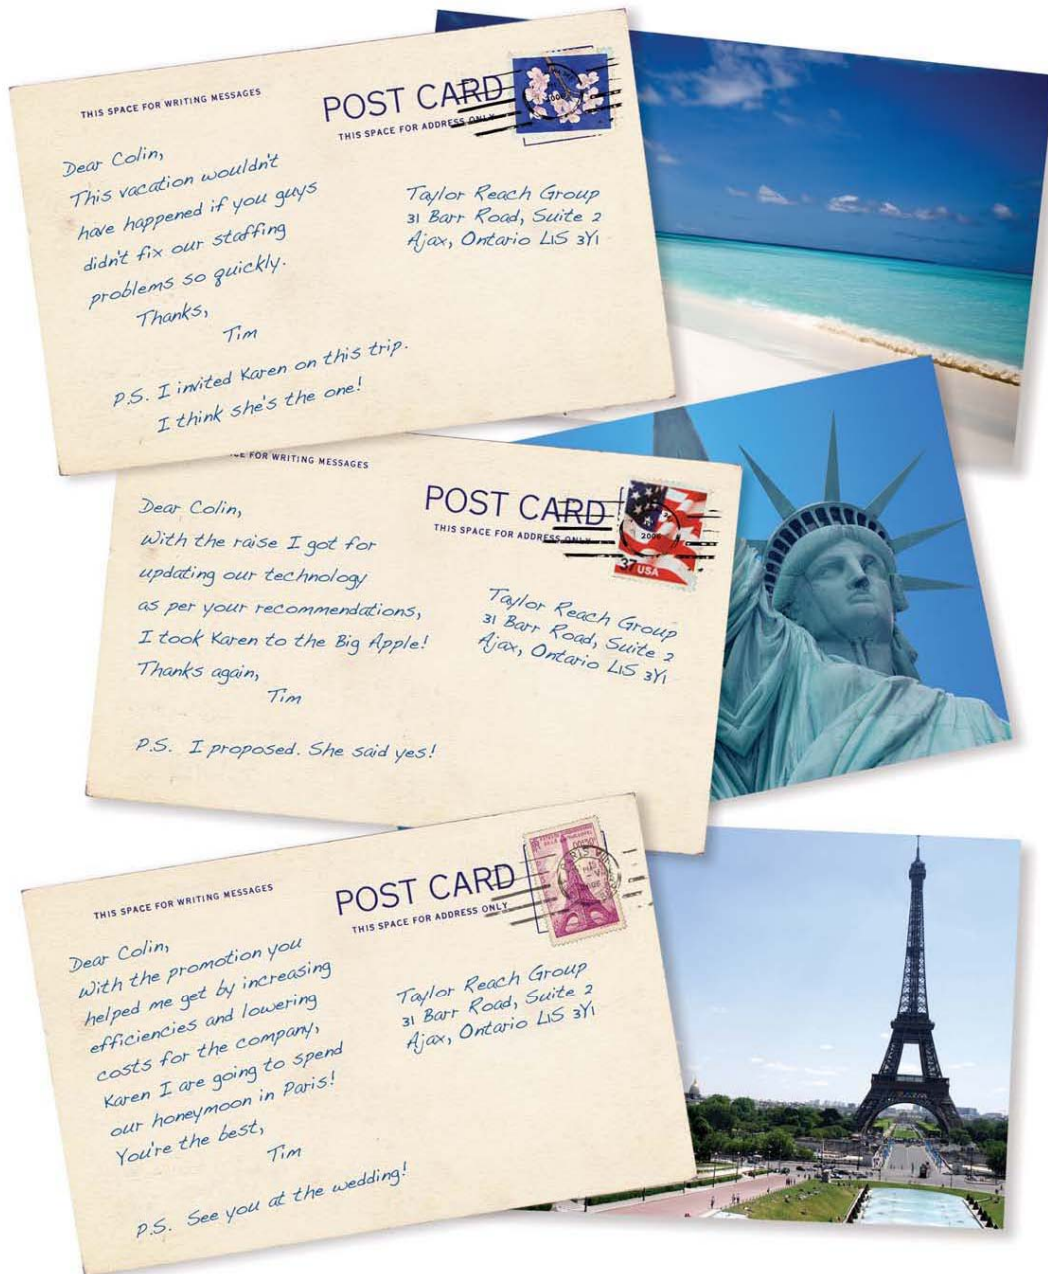 THIS SPACE FOR WRITING MESSAGES
POST CARD
THIS SPACE FOR ADDRESS ONLY
Dear Colin,
This vacation wouldn't
have happened if you guys
didn't fix our staffing
problems so quickly.
Thanks,
Tim
P.S. I invited Karen on this trip.
I think she's the one!
Taylor Reach Group
31 Barr Road, Suite 2
Ajax, Ontario L1S 3Y1
CE FOR WRITING MESSAGES
POST CARD
THIS SPACE FOR ADDRESS ONLY
2006
37 USA
Dear Colin,
With the raise I got for
updating our technology
as per your recommendations,
I took Karen to the Big Apple!
Thanks again,
Tim
P.S. I proposed. She said yes!
Taylor Reach Group
31 Barr Road, Suite 2
Ajax, Ontario L1S 3Y1
THIS SPACE FOR WRITING MESSAGES
POST CARD
THIS SPACE FOR ADDRESS ONLY
PARIS VII
Dear Colin,
With the promotion you
helped me get by increasing
efficiencies and lowering
costs for the company,
Karen I are going to spend
our honeymoon in Paris!
You're the best,
Tim
P.S. See you at the wedding!
Taylor Reach Group
31 Barr Road, Suite 2
Ajax, Ontario L1S 3Y1